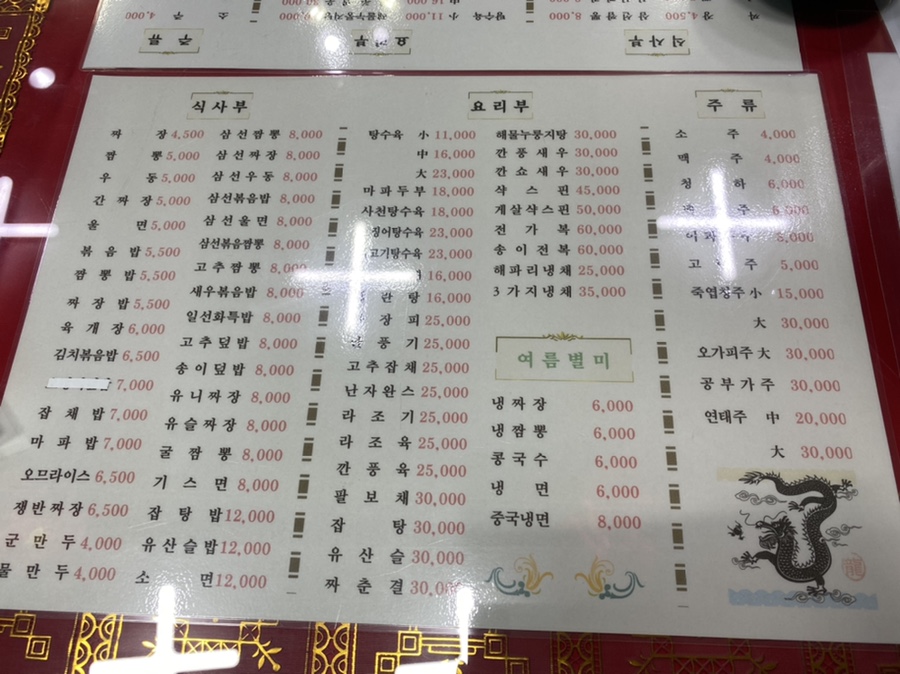 식사부
짜장 4,500
짬뽕 5,000
우동 5,000
간짜장 5,000
울면 5,000
볶음밥 5,500
짬뽕밥 5,500
짜장밥 5,500
육개장 6,000
김치볶음밥 6,500
7,000
잡채밥 7,000
마파밥 7,000
오므라이스 6,500
쟁반짜장 6,500
군만두 4,000
물만두 4,000
삼선짬뽕 8,000
삼선짜장 8,000
삼선우동 8,000
삼선볶음밥 8,000
삼선울면 8,000
삼선볶음짬뽕 8,000
고추짬뽕 8,000
새우볶음밥 8,000
일선화특밥 8,000
고추덮밥 8,000
송이덮밥 8,000
유니짜장 8,000
유슬짜장 8,000
굴짬뽕 8,000
기스면 8,000
잡탕밥 12,000
유산슬밥 12,000
소면 12,000
요리부
탕수육 小 11,000
中 16,000
大 23,000
마파두부 18,000
사천탕수육 18,000
징어탕수육 23,000
고기탕수육 23,000
16,000
란탕 16,000
장피 25,000
풍기 25,000
고추잡채 25,000
난자완스 25,000
라조기 25,000
라조육 25,000
깐풍육 25,000
팔보채 30,000
잡탕 30,000
유산슬 30,000
짜춘결 30,000
해물누룽지탕 30,000
깐풍새우 30,000
깐쇼새우 30,000
샥스핀 45,000
게살샥스핀 50,000
전가복 60,000
송이전복 60,000
해파리냉채 25,000
3가지냉채 35,000
여름별미
냉짜장 6,000
냉짬뽕 6,000
콩국수 6,000
냉면 6,000
중국냉면 8,000
주류
소주 4,000
맥주 4,000
청하 6,000
주 6,500
5,000
고량주 5,000
죽엽청주 小 15,000
大 30,000
오가피주 大 30,000
공부가주 30,000
연태주 中 20,000
大 30,000
주류
요리부
식사부